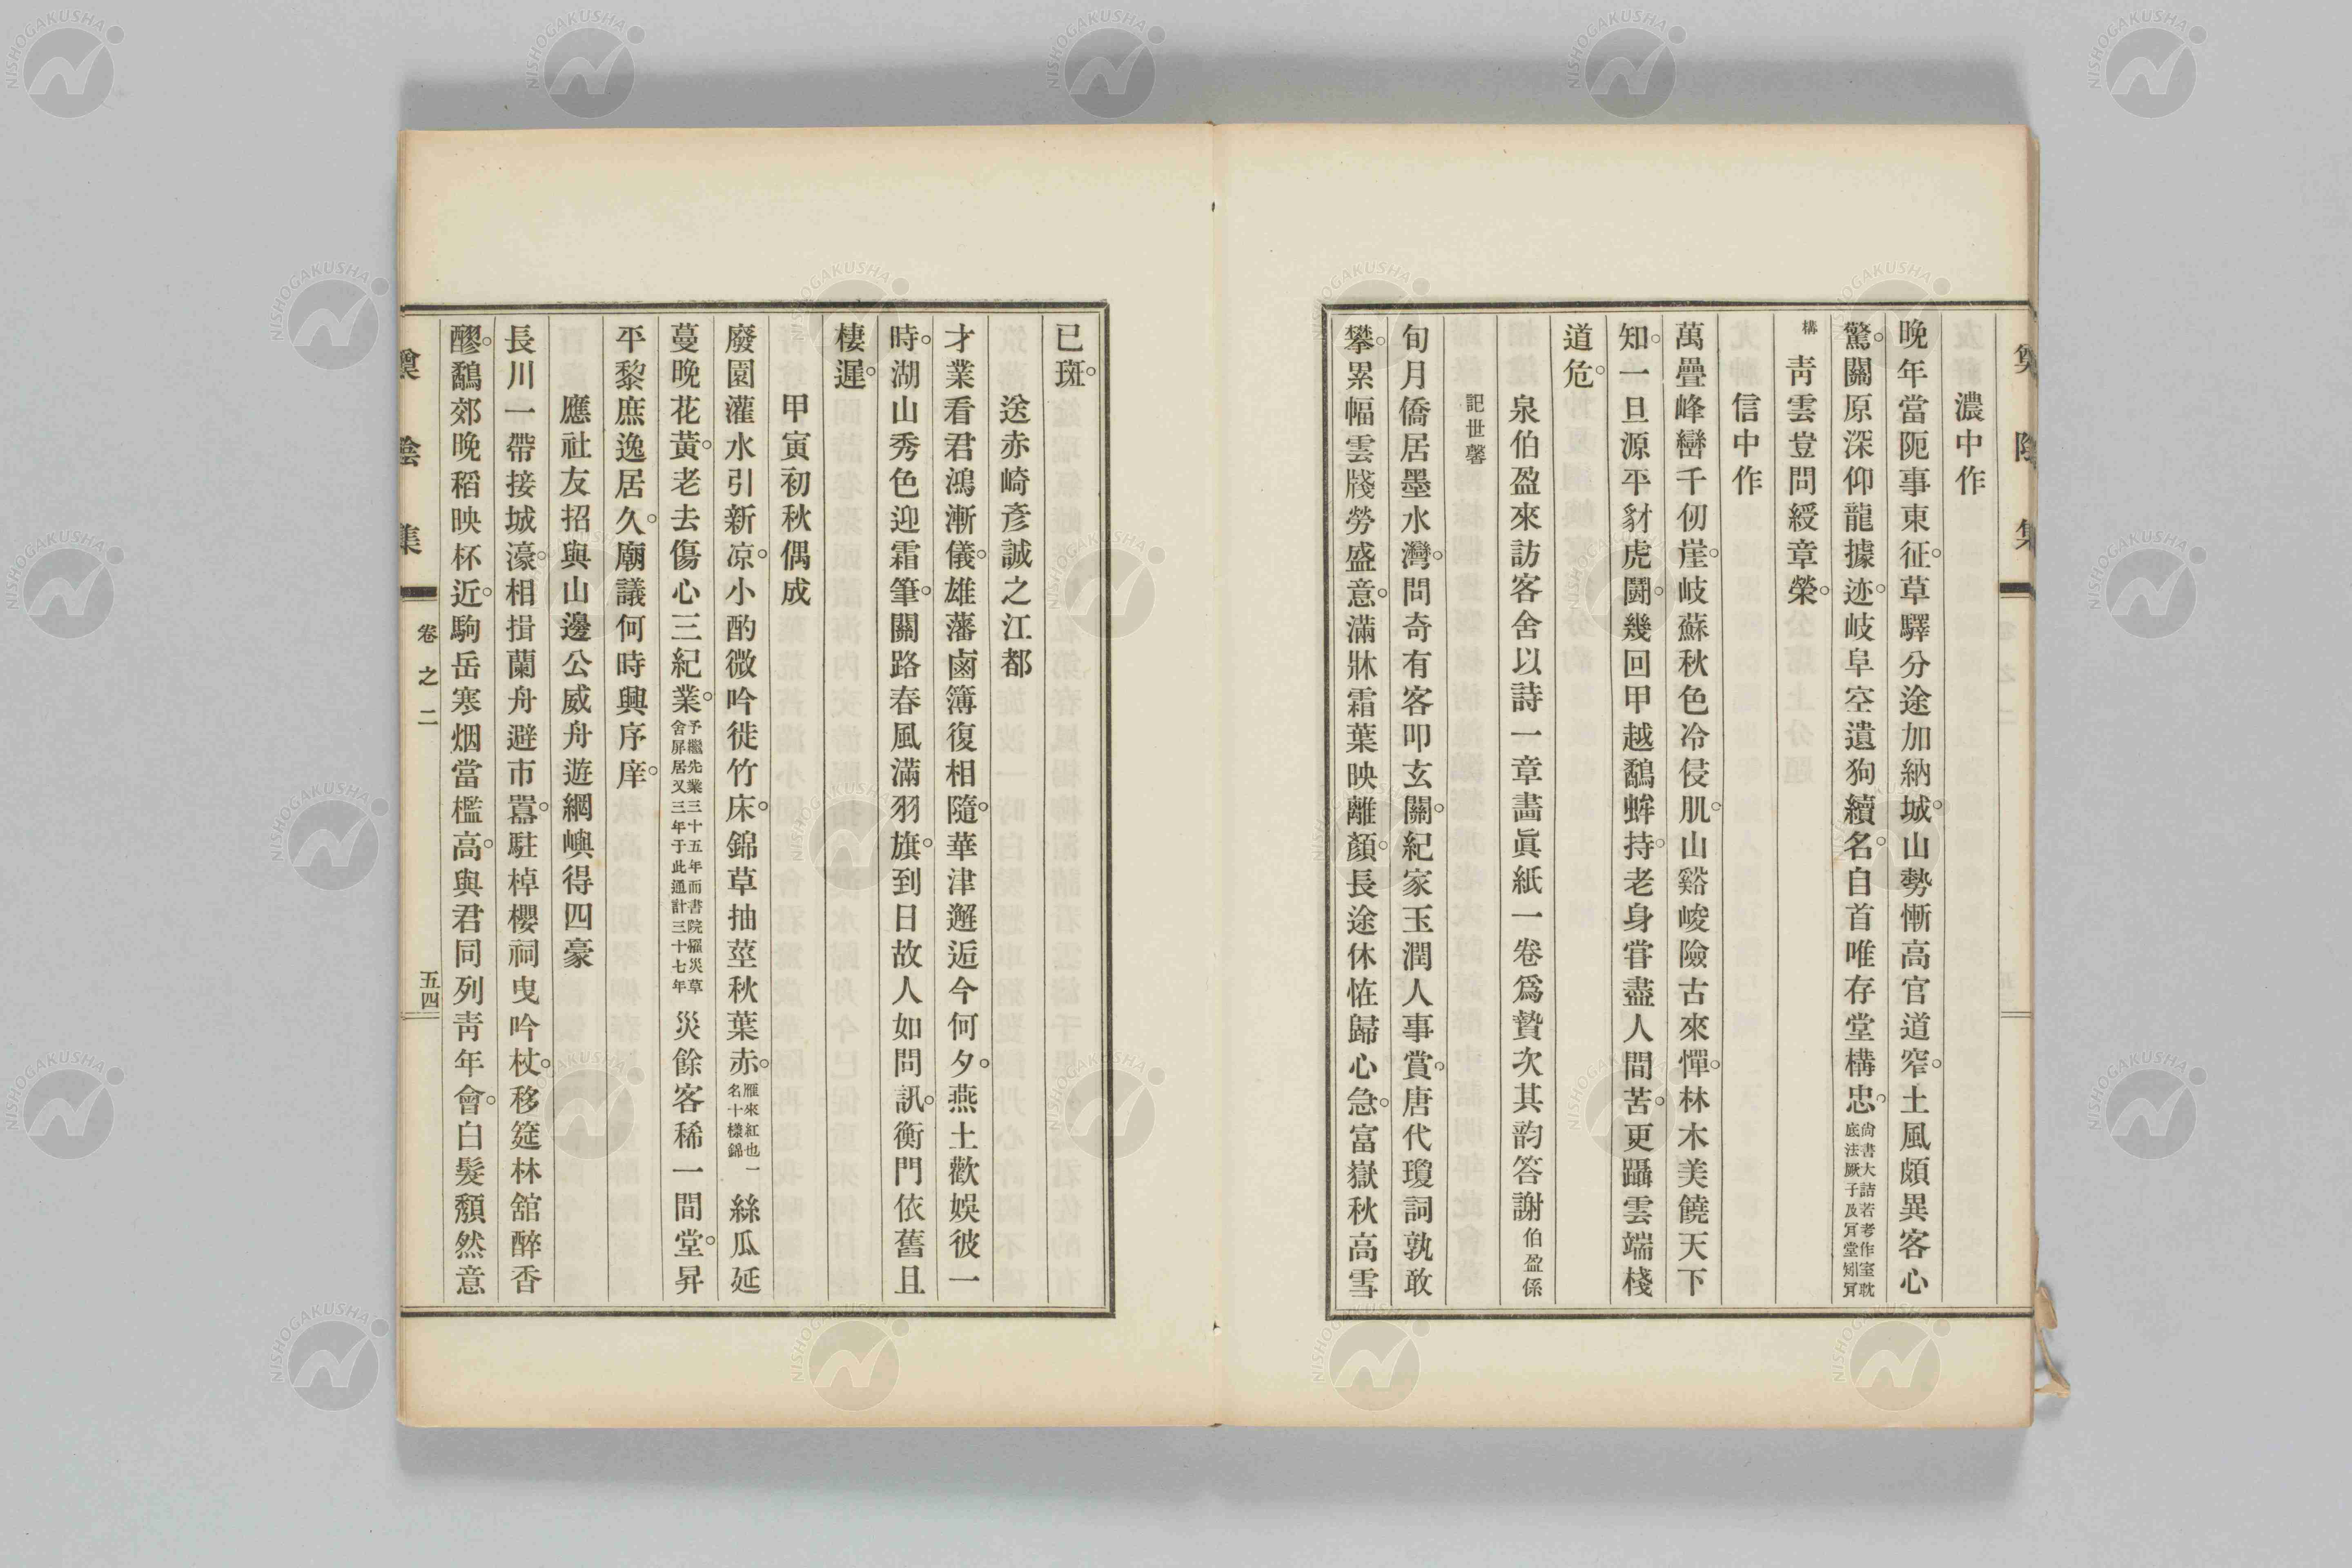 濃中作
晚年當阨事東征。草驛分途加納城。山勢慚高官道窄。土風頗異客心
驚。關原深仰龍據迹。岐阜空遺狗續名。自首唯存堂構忠。尙書大誥若考作室耽底法厥子及肎堂矧肎
構　靑雲豈問綬章榮。
信中作
萬疊峰巒千仞崖。岐蘇秋色冷侵肌。山谿峻險古來憚。林木美饒天下
知。一旦源平豺虎鬪。幾回甲越鷸蚌持。老身甞盡人間苦。更躡雲端棧
道危。
泉伯盈來訪客舍以詩一章畵眞紙一卷爲贄次其韵答謝伯盈係
記世馨
旬月僑居墨水灣。問奇有客叩玄關。紀家玉潤人事賞。唐代瓊詞孰敢
攀。累幅雲牋勞盛意。滿牀霜葉映離顏。長途休恠歸心急。富嶽秋高雪
已斑。
送赤崎彥誠之江都
才業看君鴻漸儀。雄藩鹵簿復相隨。華津邂逅今何夕。燕土歡娛彼一
時。湖山秀色迎霜筆。關路春風滿羽旗。到日故人如問訊。衡門依舊且
棲遲。
甲寅初秋偶成
廢園灌水引新凉。小酌微吟徙竹床。錦草抽莖秋葉赤。雁來紅也一名十樣錦　絲瓜延
蔓晚花黃。老去傷心三紀業。予繼先業三十五年而書院罹災草舍屛居又三年于此通計三十七年　災餘客稀一間堂。昇
平黎庶逸居久。廟議何時興序庠。
應社友招與山邊公威舟遊網嶼得四豪
長川一帶接城濠。相揖蘭舟避市囂。駐棹櫻祠曳吟杖。移筵林舘醉香
醪。鷸郊晚稻映杯近。駒岳寒烟當檻高。與君同列靑年會。白髮頽然意
陰集
卷之二
五四
NISHOGAKUSHA